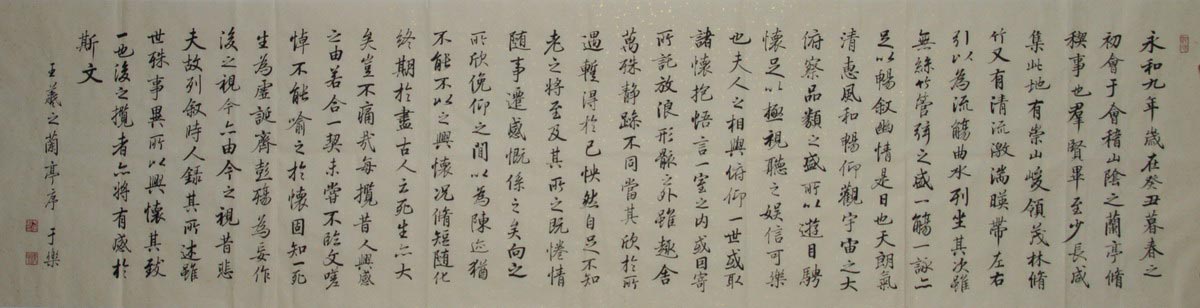 永和九年歲在癸丑暮春之
初會于會稽山陰之蘭亭脩
稧事也羣賢畢至少長咸
集此地有崇山峻領茂林脩
竹又有清流激湍暎帶左右
引以為流觴曲水列坐其次雖
無絲竹管弦之盛一觴一詠亦
足以暢敘幽情是日也天朗氣
清惠風和暢仰觀宇宙之大
俯察品類之盛所以遊目騁
懷足以極視聽之娛信可樂
也夫人之相與俯仰一世或取
諸懷抱悟言一室之内或因寄
所託放浪形骸之外雖趣舍
萬殊静躁不同當其欣於所
遇蹔得於己怏然自足不知
老之將至及其所之既惓情
隨事遷感慨係之矣向之
所欣俛仰之間以為陳迹猶
不能不以之興懷況脩短隨化
終期於盡古人云死生亦大
矣豈不痛哉每攬昔人興感
之由若合一契未嘗不臨文嗟
悼不能喻之於懷固知一死
生為虛誕齊彭殤為妄作
後之視今亦由今之視昔悲
夫故列敘時人録其所述雖
世殊事異所以興懷其致
一也後之攬者亦將有感於
斯文
王羲之蘭亭序 于樂